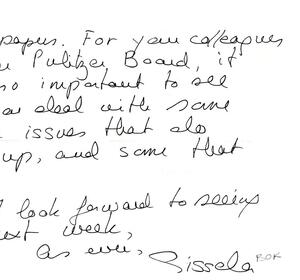 papers. For your colleagues
Pulitzer Board, it
so important to see
deal with some
issues that do
up, and some that
I look forward to seeing
next week,
As ever,
Sissela BOK